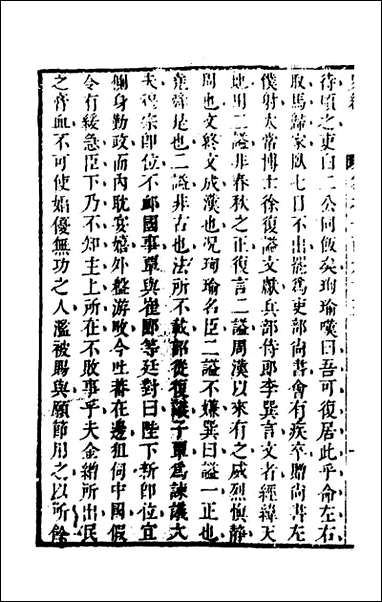 待頃之吏白二公同飯矣珣瑜嘆曰吾可復居此乎命左右
取馬歸家臥七日不出罷爲吏部尚書會有疾卒贈尚書左
僕射太常博士徐復諡文獻兵部侍郎李巽言文者經緯天
地用二諡非春秋之正復言二諡周漢以來有之威烈愼静
周也文終文成漢也况珣瑜名臣二諡不嫌巽曰諡一正也
堯舜是也二諡非古也法所不載詔從復議子覃爲諫議大
夫穆宗即位不䘏國事覃與崔郾等廷對曰陛下新即位宜
側身勤政而內耽宴嬉外盤游畋今吐蕃在邊狙伺中國假
令有緩急臣下乃不知主上所在不敗事乎夫金繒所出民
之膏血不可使娼優無功之人濫被賜與願節用之以所餘